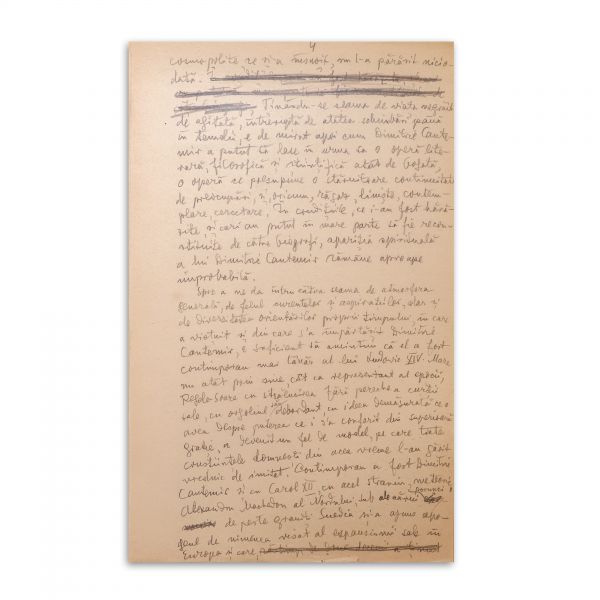 4
cosmopolite ce și-a însușit, nu l-a părăsit nicio-
dată.
Ținându-se seama de viața
de agitată, întreruptă de atâtea schimbări până
în temelii, e de mirat apoi cum Dimitrie Cante-
mir a putut să lase în urma sa o operă lite-
rară, filosofică și științifică atât de bogată,
o operă ce presupune o stăruitoare continuitate
de preocupări, și, oricum, răgaz, liniște, contem-
plare, cercetare. În condițiile, ce i-au fost hără-
zite, și cari au putut în mare parte să fie recon-
stituite de către biografi, apariția spirituală
a lui Dimitrie Cantemir rămâne aproape
improbabilă.
Spre a ne da întru câtva seama de atmosfera
generală, de felul curentelor și aspirațiilor, dar și
de diversitatea orientărilor proprii timpului, în care
a viețuit și din care s'a împărtășit Dimitrie
Cantemir, e suficient să amintim că el a fost
contimporan mai tânăr al lui Ludovic XIV. Mare
nu atât prin sine, cât ca reprezentant al epocii,
Regele-Soare cu strălucirea fără pereche a curții
sale, cu orgoliul său debordant, cu ideea demăsurată ce o
avea despre puterea ce i s'a conferit din superioară
grație, a devenit un fel de model, pe care toate
conștiințele domnești din acea vreme l-au găsit
vrednic de imitat. Contimporan a fost Dimitrie
Cantemir și cu Carol XII, cu acel straniu, meteoric
Alexandru Machedon al Nordului, sub ale cărui porunci
de peste graniți Suedia și-a ajuns apo-
geul de nimenea visat al expansiunii sale în
Europa și care